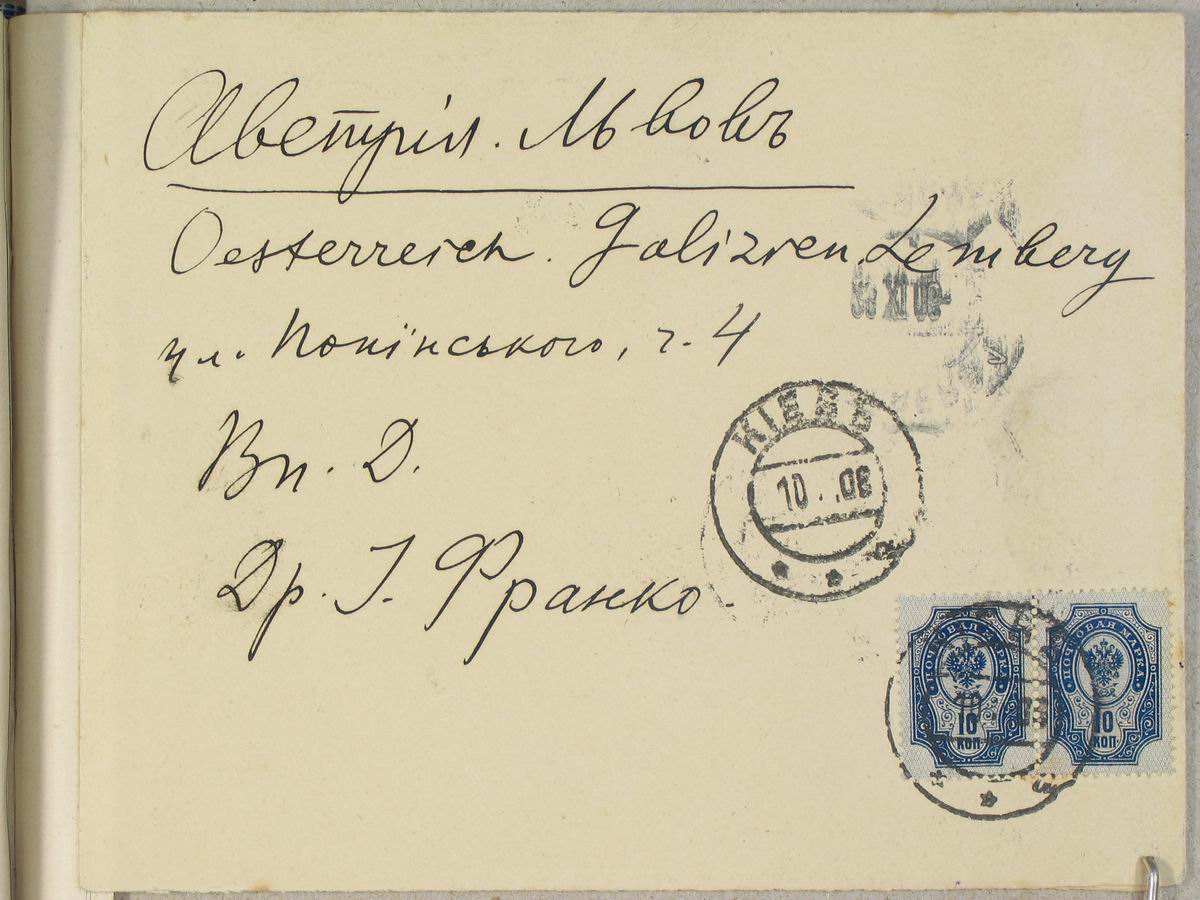 Австрія. Львовъ
Oesterreich. Galizien Lemberg
ул. Понінського, ч. 4
Вп. Д.
Др. І. Франко.
КІЕВЪ
10 . . 08
ПОЧТОВАЯ МАРКА
10
КОП
ПОЧТОВАЯ МАРКА
10
КОП